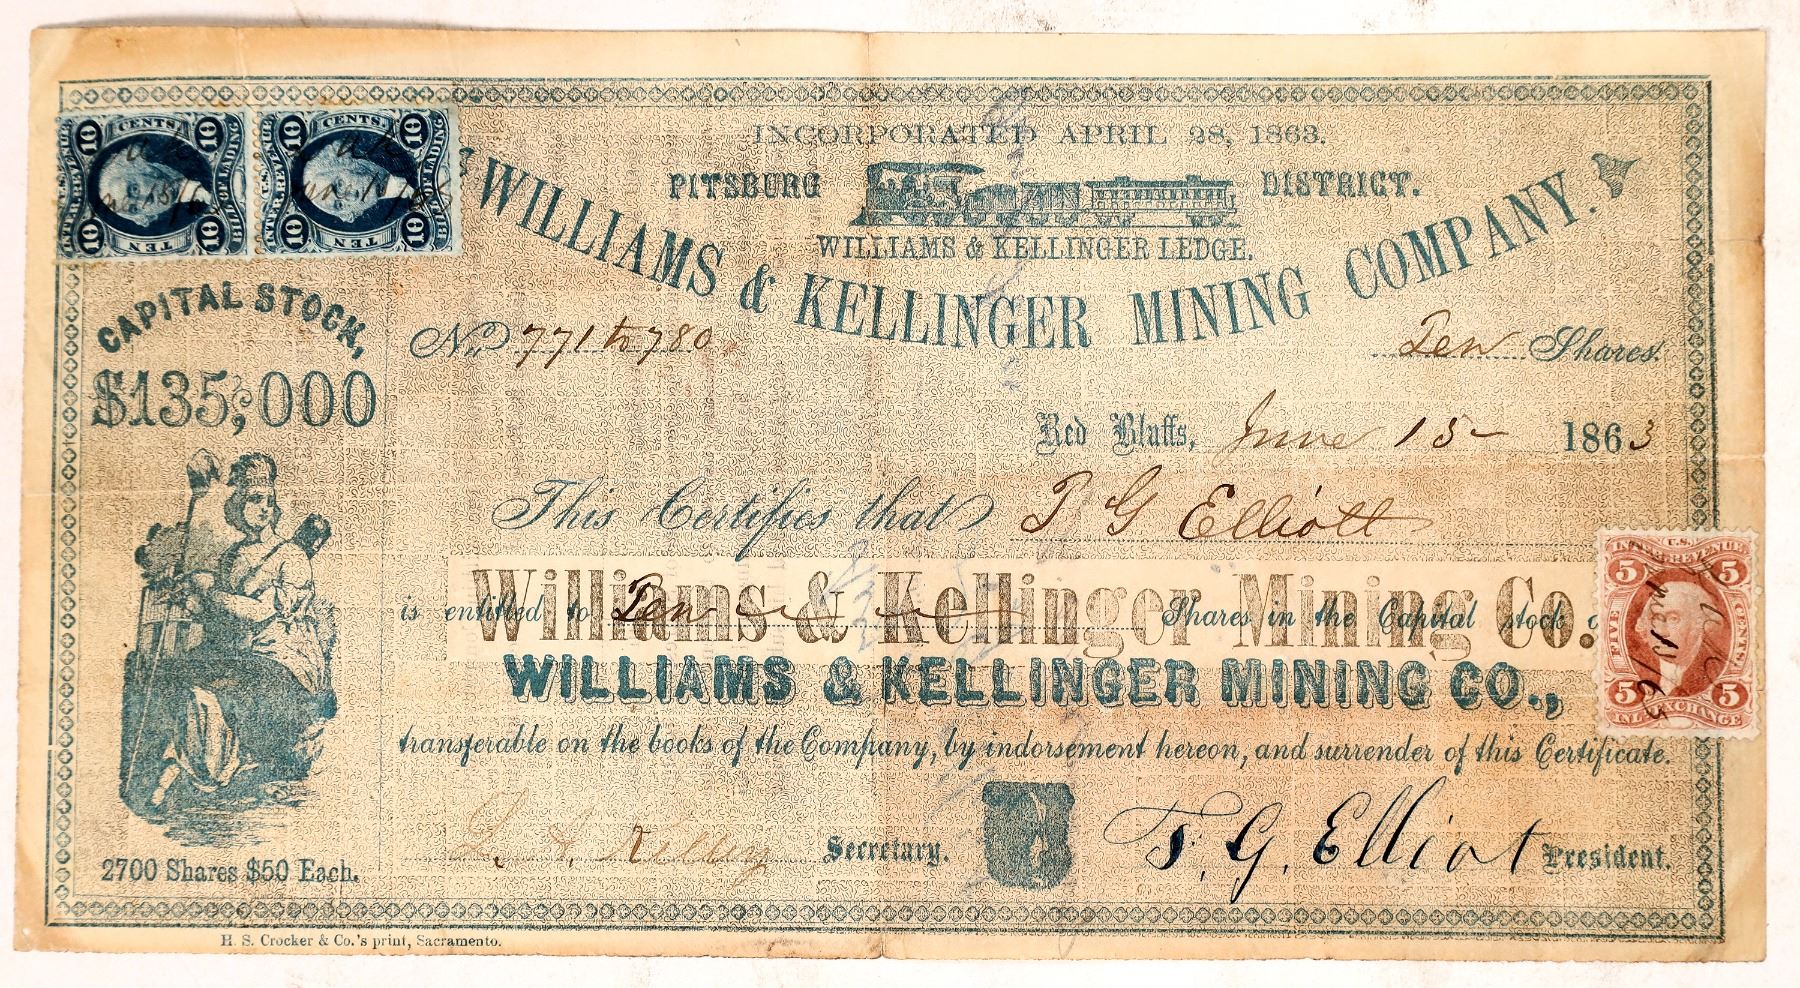 INCORPORATED APRIL 28, 1863.
PITSBURG DISTRICT.
WILLIAMS & KELLINGER LEDGE.
WILLIAMS & KELLINGER MINING COMPANY.
U.S. INTER. REVENUE
10 CENTS. 10
BILL OF LADING
10 TEN 10
U.S. INTER. REVENUE
10 CENTS. 10
BILL OF LADING
10 TEN 10
CAPITAL STOCK,
$135,000
No. 771 to 780
Ten Shares.
Red Bluffs, June 15 1863
This Certifies that T G Elliott
Williams & Kellinger Mining Co.
is entitled to Ten Shares in the Capital stock
WILLIAMS & KELLINGER MINING CO.,
transferable on the books of the Company, by indorsement hereon, and surrender of this Certificate.
U.S.
INTER. REVENUE
5 5
FIVE CENTS.
5 5
INL. EXCHANGE
Secretary.
T. G. Elliot President.
2700 Shares $50 Each.
H. S. Crocker & Co.'s print, Sacramento.